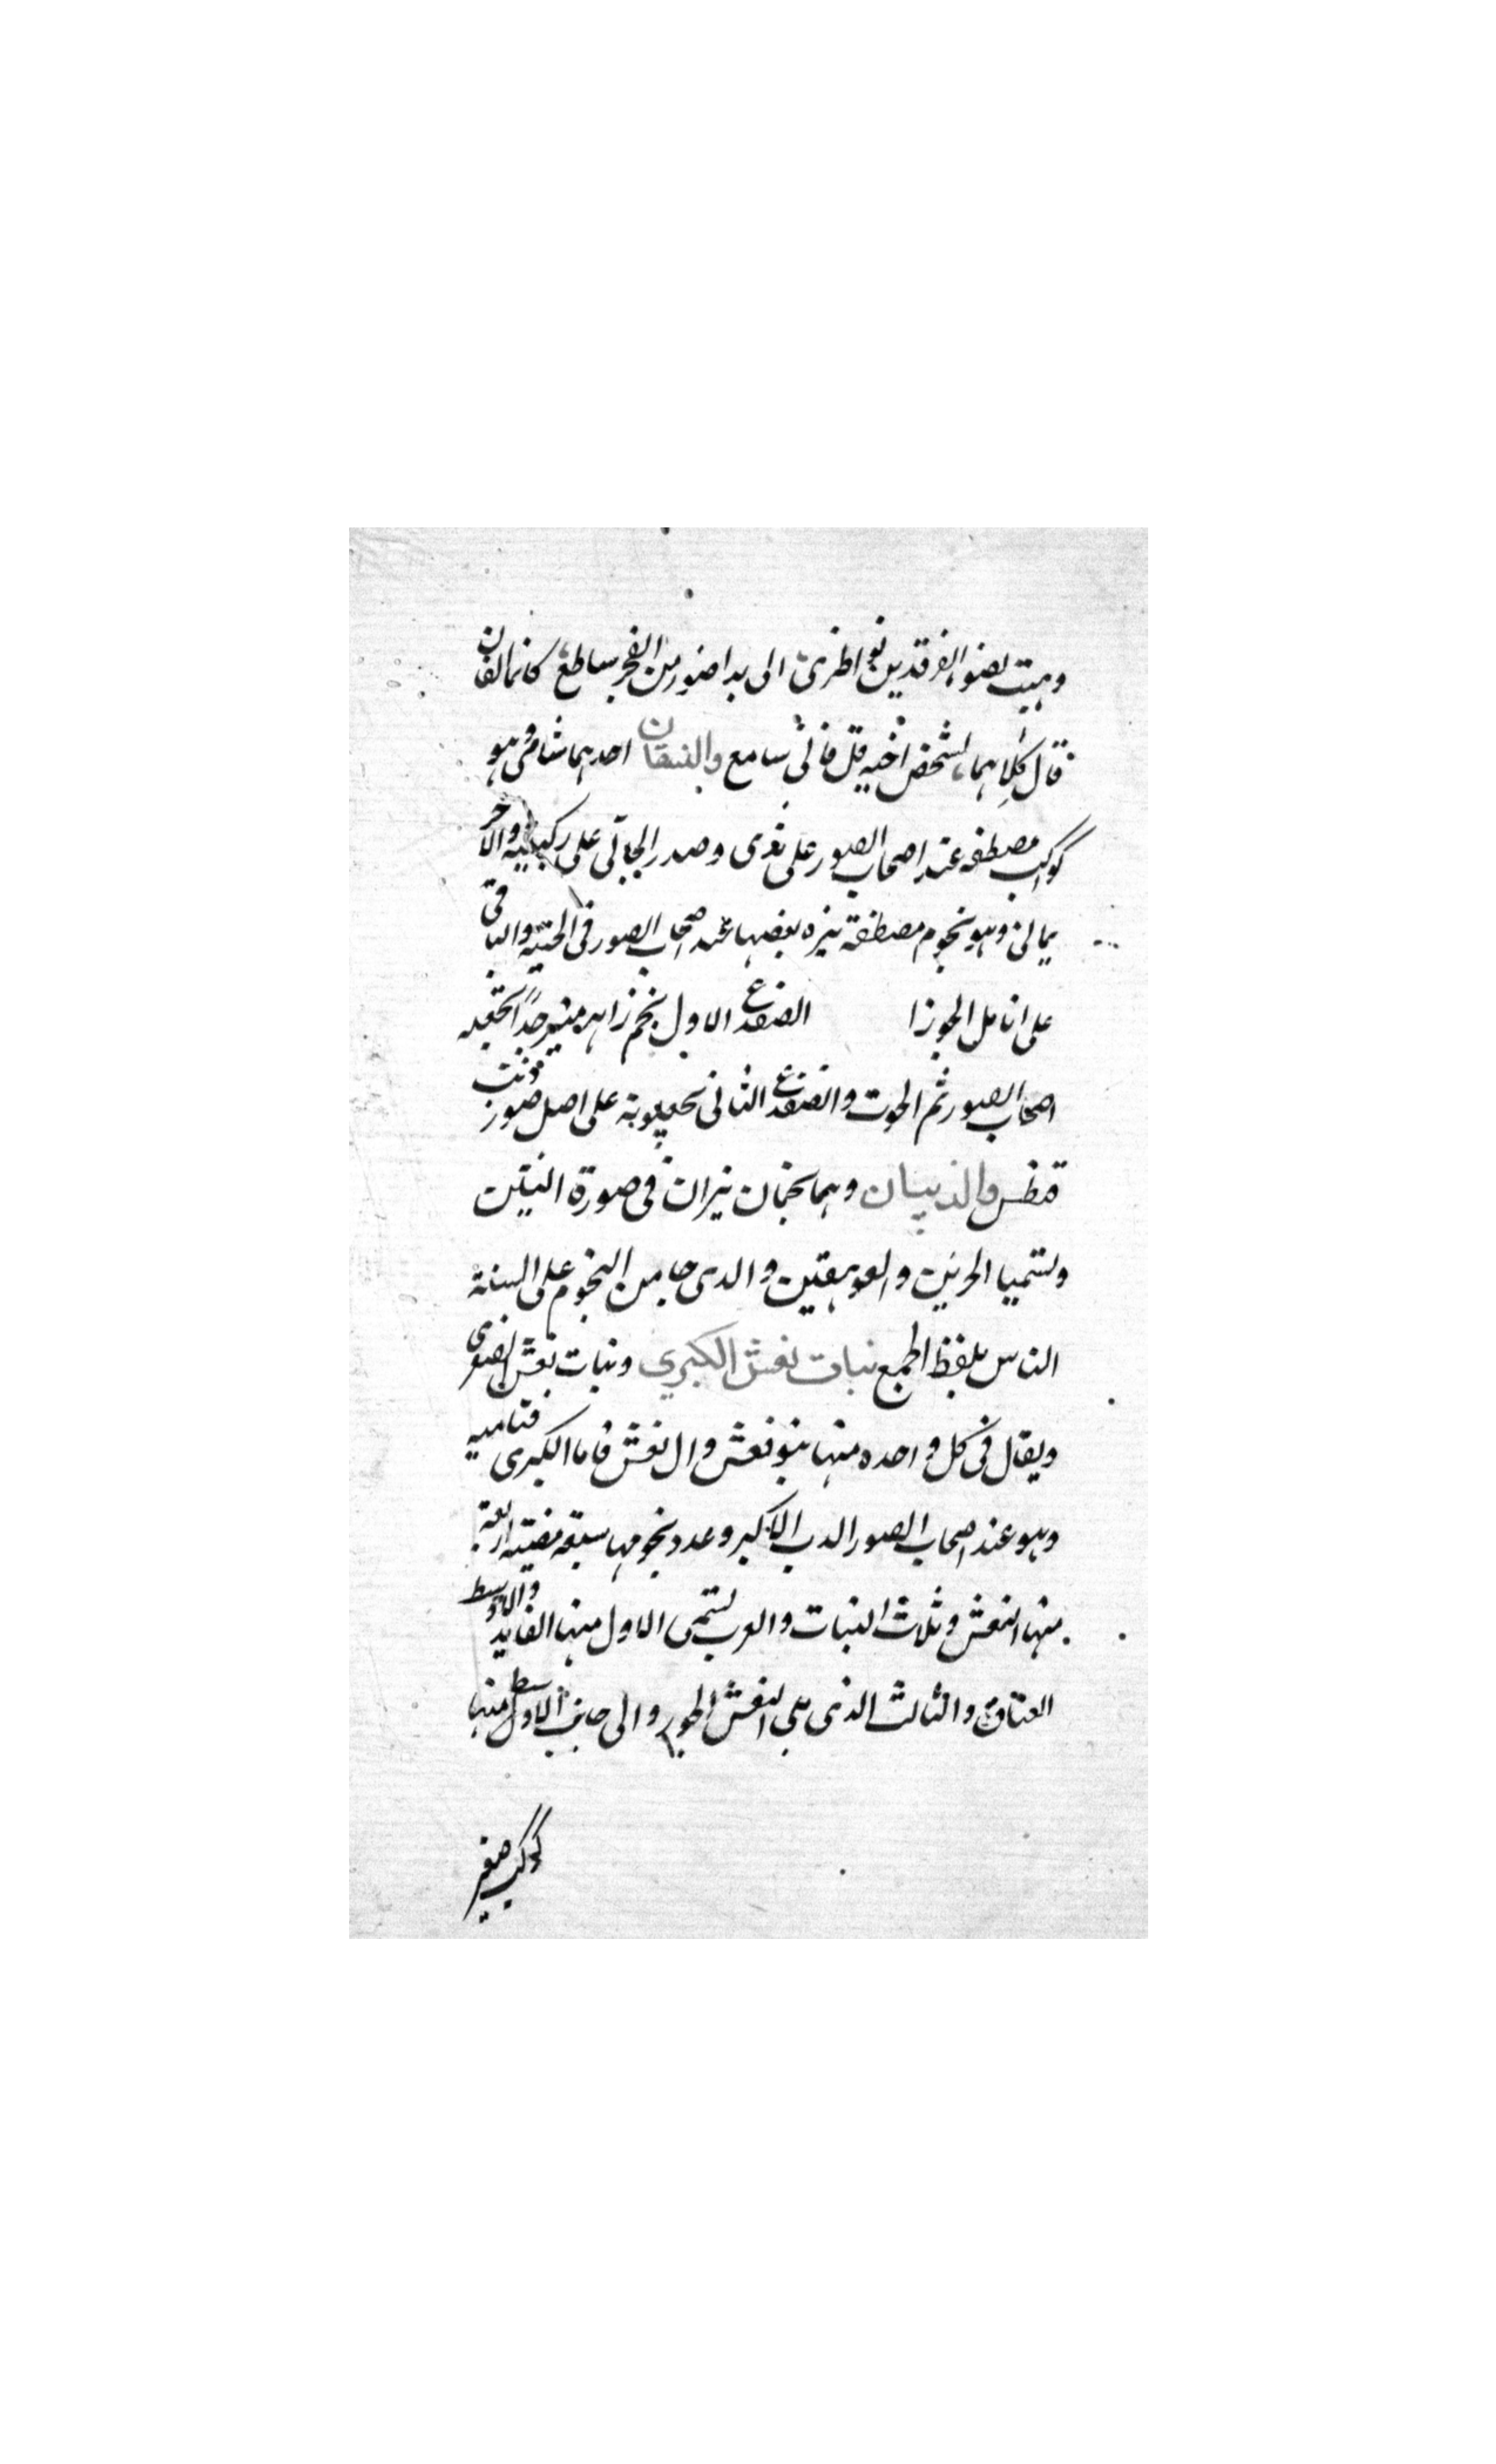 وهبت لضوء الفرقدين نواظرى الى بدا ضوء من الفجر ساطع كانما الفان
قال كلاهما لشخص اخيه قل فانى سامع والنسقان احدهما شامى وهو
كواكب مصطفه عند اصحاب الصور على ثدى وصدر الجاثى على ركبتيه والاخر
يمانى وهو نجوم مصطفة نيره بعضها عند اصحاب الصور فى الحيه والباقى
على انامل الجوزا الضفدع الاول نجم زاهر منير جدا تجعله
اصحاب الصور فم الحوت والضفدع الثانى يجعلونه على اصل ذنب
قطس والذيبان وهما نجمان نيران فى صورة التنين
ولتسميا الحرين والعوهقين والدى جا من النجوم على السنة
الناس بلفظ الجمع بنات نعش الكبرى وبنات نعش الصغرى
ويقال فى كل واحده منها بنو نعش وال نعش فاما الكبرى فشاميه
وهو عند اصحاب الصور الدب الاكبر وعدد نجومها سبعه مضيئه اربعة
منها النعش وثلاث البنات والعرب تسمى الاول منها القايد والاوسط
العناق والثالث الذى يلى النعش الجور والى جانب الاوسط منها
كوكب صغير